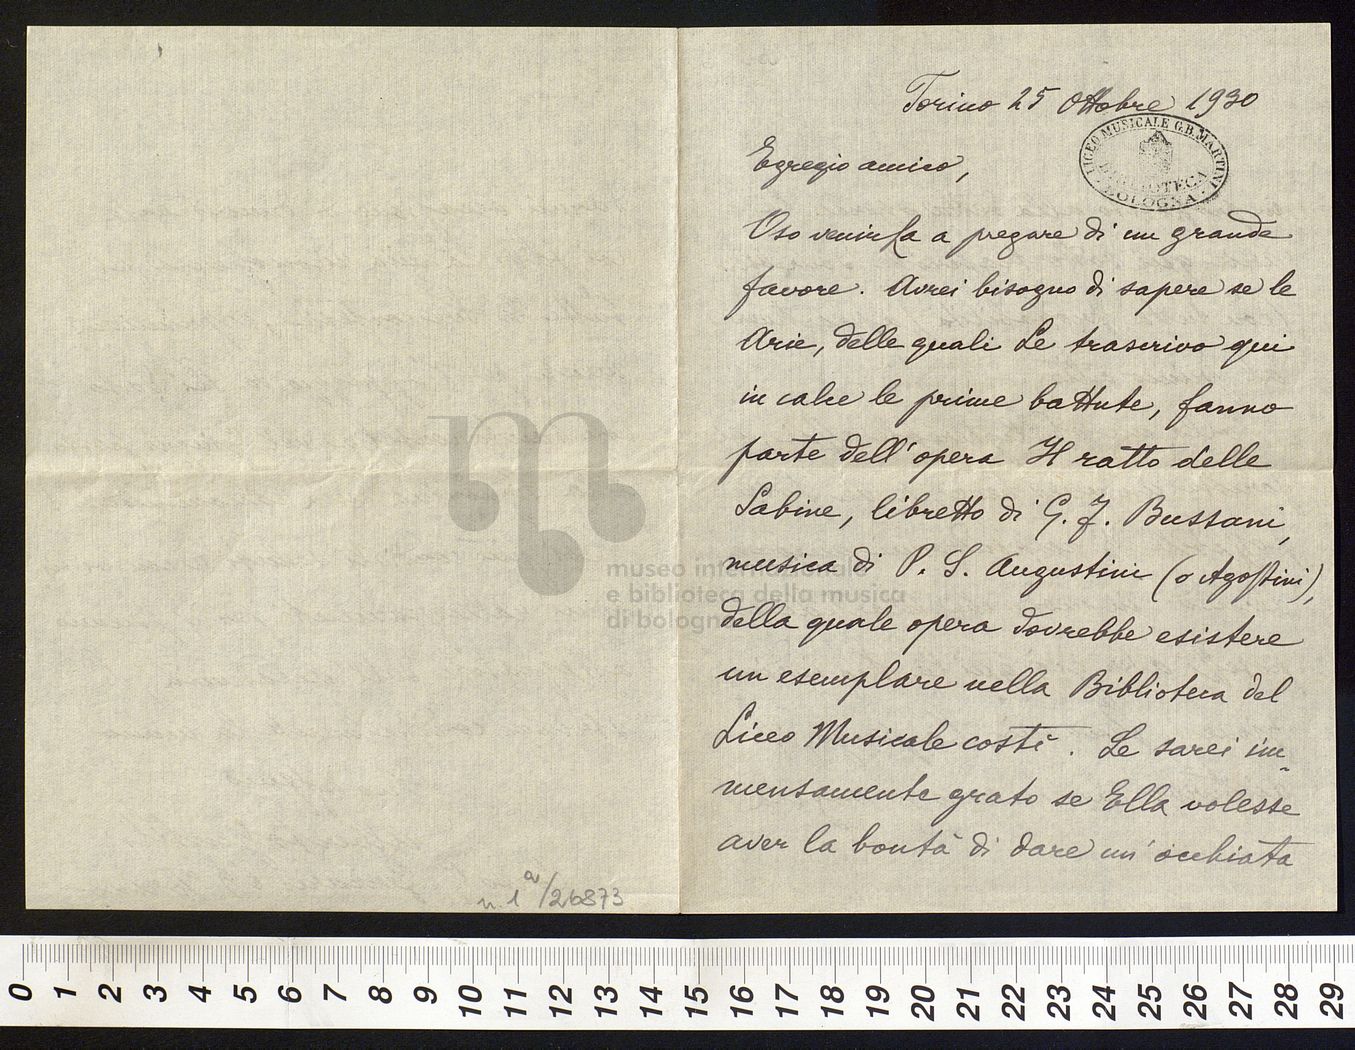 Torino 25 Ottobre 1930
LICEO MUSICALE G.B. MARTINI
BIBLIOTECA
BOLOGNA
Egregio amico,
Oso venirLa a pregare di un grande
favore. Avrei bisogno di sapere se le
Arie, delle quali Le trascrivo qui
in calce le prime battute, fanno
parte dell'opera Il ratto delle
Sabine, libretto di G. F. Bussani,
musica di P. S. Augustini (o Agostini),
della quale opera dovrebbe esistere
un esemplare nella Biblioteca del
Liceo Musicale costì. Le sarei im-
mensamente grato se Ella volesse
aver la bontà di dare un'occhiata
n. 1 a/26873
museo internazionale
e biblioteca della musica
di bologna
0 1 2 3 4 5 6 7 8 9 10 11 12 13 14 15 16 17 18 19 20 21 22 23 24 25 26 27 28 29